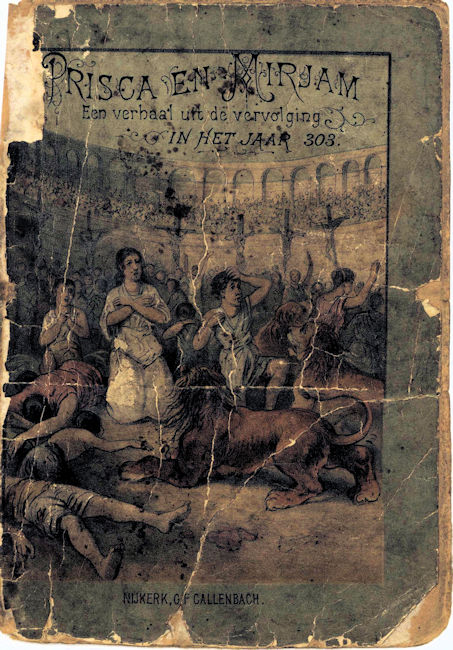 PRISCA EN MIRJAM
Een verhaal uit de vervolging
IN HET JAAR 303.
NIJKERK, G.F. CALLENBACH.